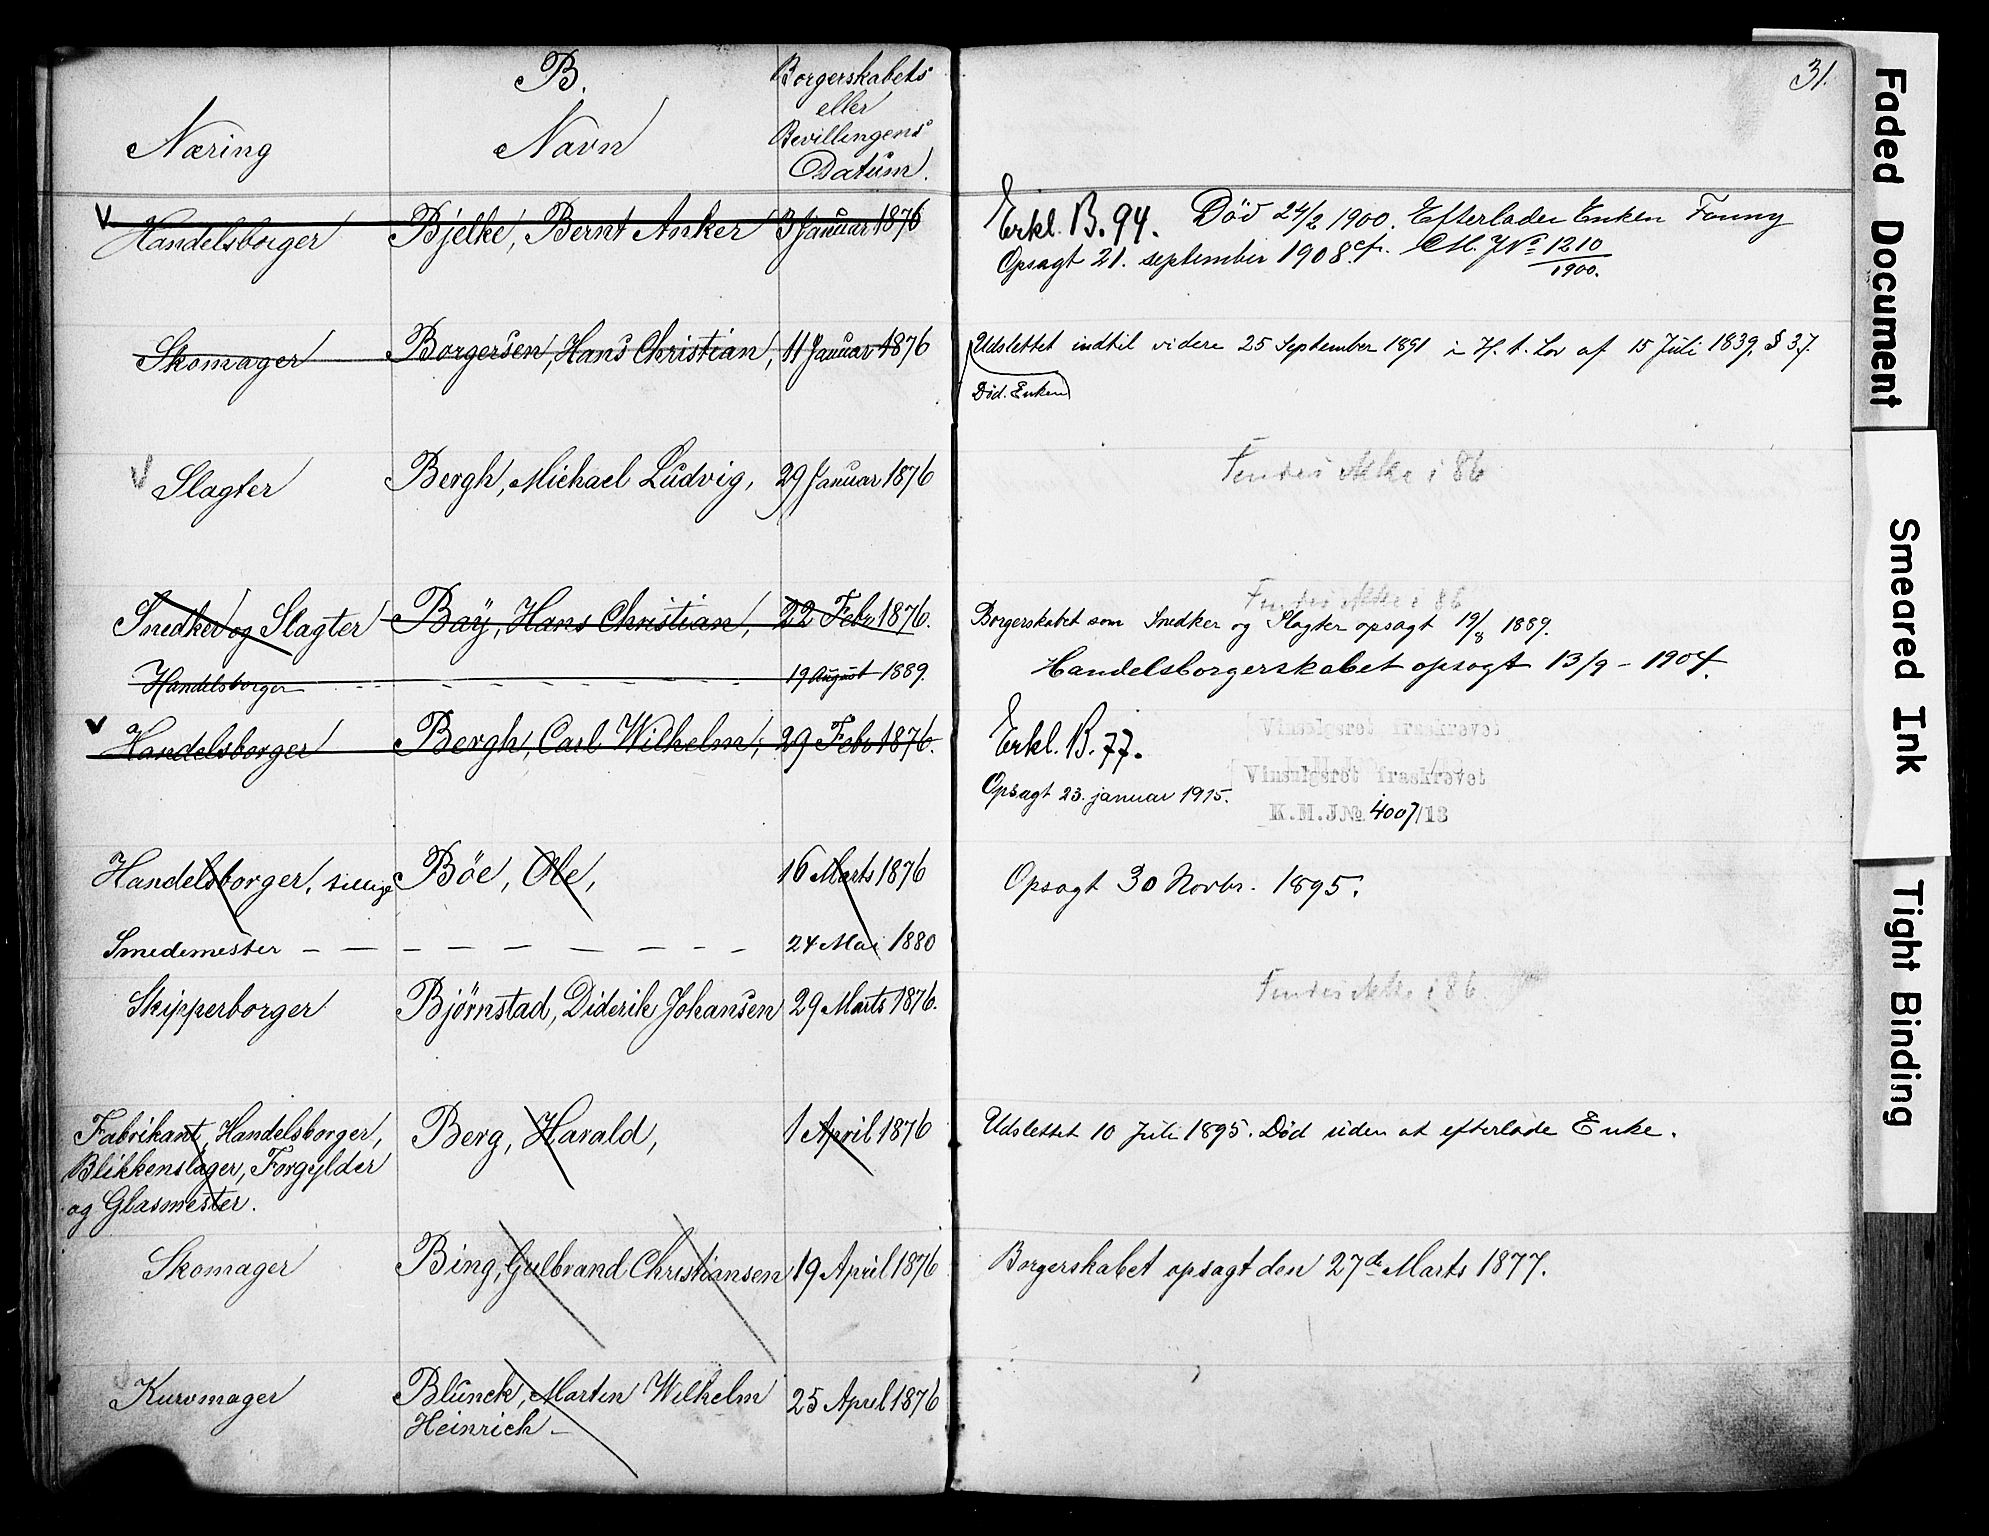 B.
31.
Næring
Navn
Borgerskabets
eller
Bevillingens
Datum.
V Handelsborger Bjelke, Bernt Anker 3 Januar 1876 Erkl. B. 94. Død 24/2 1900. Efterlader Enken Fanny
Opsagt 21. september 1908. cf. M. J No 1210/1900.
Skomager Borgersen, Hans Christian, 11 Januar 1876 Udslettet indtil videre 25 September 1891 i H. t. Lov af 15 Juli 1839, § 37.
Død. Enken
V Slagter Bergh, Michael Ludvig, 29 Januar 1876 Findes ikke i 86
Findes ikke i 86
Snedker og Slagter Baÿ, Hans Christian, 22 Febr 1876. Borgerskabet som Snedker og Slagter opsagt 19/8 1889.
Handelsborger - - - - 19 August 1889. Handelsborgerskabet opsagt 13/9 - 1904.
V Handelsborger Bergh, Carl Wilhelm, 29 Febr 1876. Erkl. B. 77.
Vinsalgsret fraskrevet
Vinsalgsret fraskrevet
Opsagt 23. januar 1915.
K.M.J№ 4007/13
Handelsborger, tillige Böe, Ole, 16 Marts 1876 Opsagt 30 Novbr. 1895.
Smedemester - - - - - - - - 24 Mai 1880
Skipperborger Bjørnstad, Diderik Johansen 29 Marts 1876. Findes ikke i 86
Fabrikant, Handelsborger, Berg, Harald, 1 April 1876 Udslettet 10 Juli 1895. Død uden at efterlade Enke.
Blikkenslager, Forgylder
og Glasmester.
Skomager Bing, Gulbrand Christiansen 19 April 1876 Borgerskabet opsagt den 27de Marts 1877.
Kurvmager Blunck, Martin Wilhelm 25 April 1876
Heinrich -
Faded Document
Smeared Ink
Tight Binding